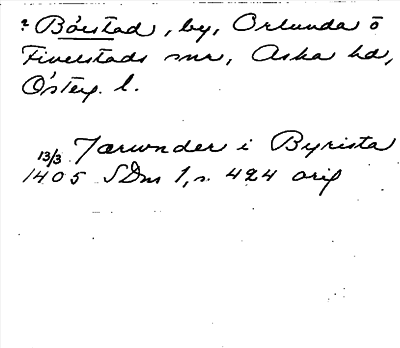 ? Börstad, by, Orlunda o
Fivelstads snr, Aska hd,
Österg. l.
Tærwnder i Byrista
13/3
1405 SDns 1, s. 424 orig